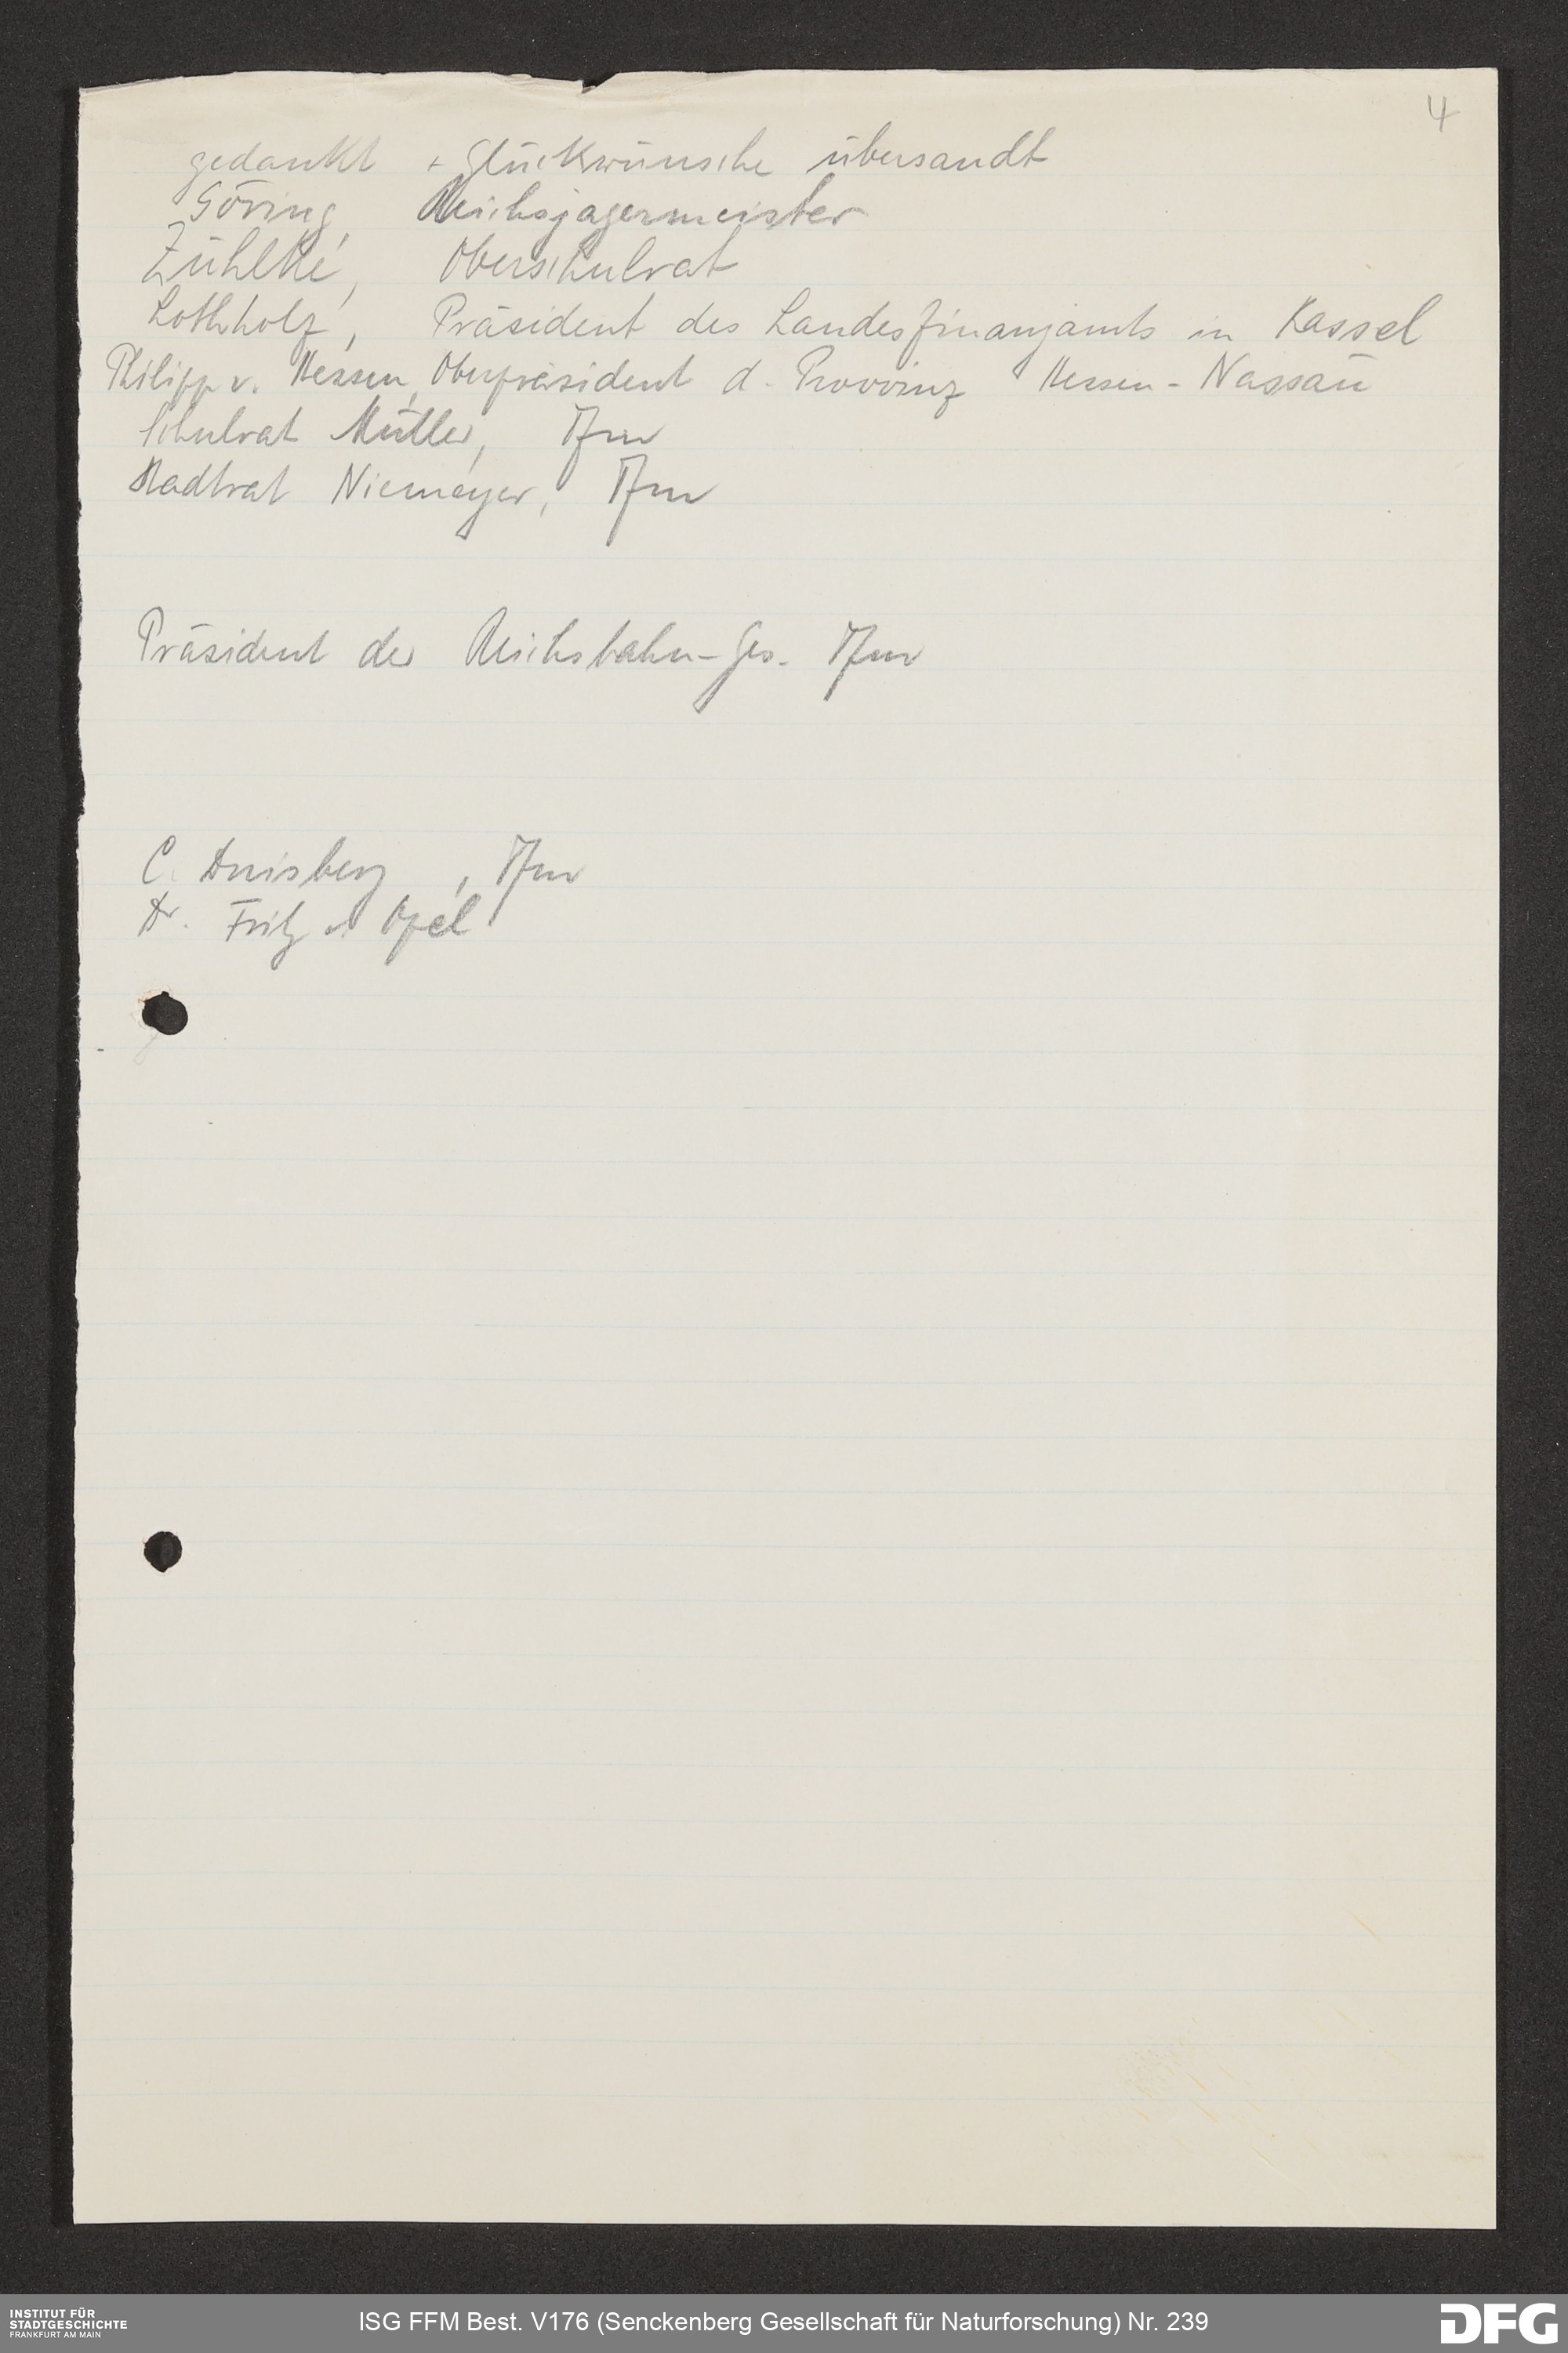 4
gedankt + Glückwünsche übersandt
Göring, Reichsjägermeister
Zühlke, Oberschulrat
Lothholz, Präsident des Landesfinanzamts in Kassel
Philipp v. Hessen, Oberpräsident d. Provinz Hessen-Nassau
Schulrat Müller, Ffm
Stadtrat Niemeyer, Ffm
Präsident der Reichsbahn-Ges. Ffm
C. Duisberg, Ffm
Dr. Fritz v. Opel
INSTITUT FÜR
STADTGESCHICHTE
FRANKFURT AM MAIN
ISG FFM Best. V176 (Senckenberg Gesellschaft für Naturforschung) Nr. 239
DFG